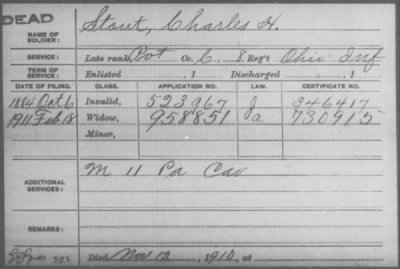 DEAD
NAME OF SOLDIER: Stout, Charles H.
SERVICE: Late rank, Pvt Co. C, 8 Reg't Ohio Inf
TERM OF SERVICE: Enlisted , 1 Discharged , 1
DATE OF FILING. CLASS. APPLICATION NO. LAW. CERTIFICATE NO.
1884 Oct 6 Invalid, 523967 J 346417
1911 Feb 18 Widow, 958851 a 730915
Minor,
ADDITIONAL SERVICES: M 11 Pa Cav
REMARKS:
Died Nov 12, 1910, at